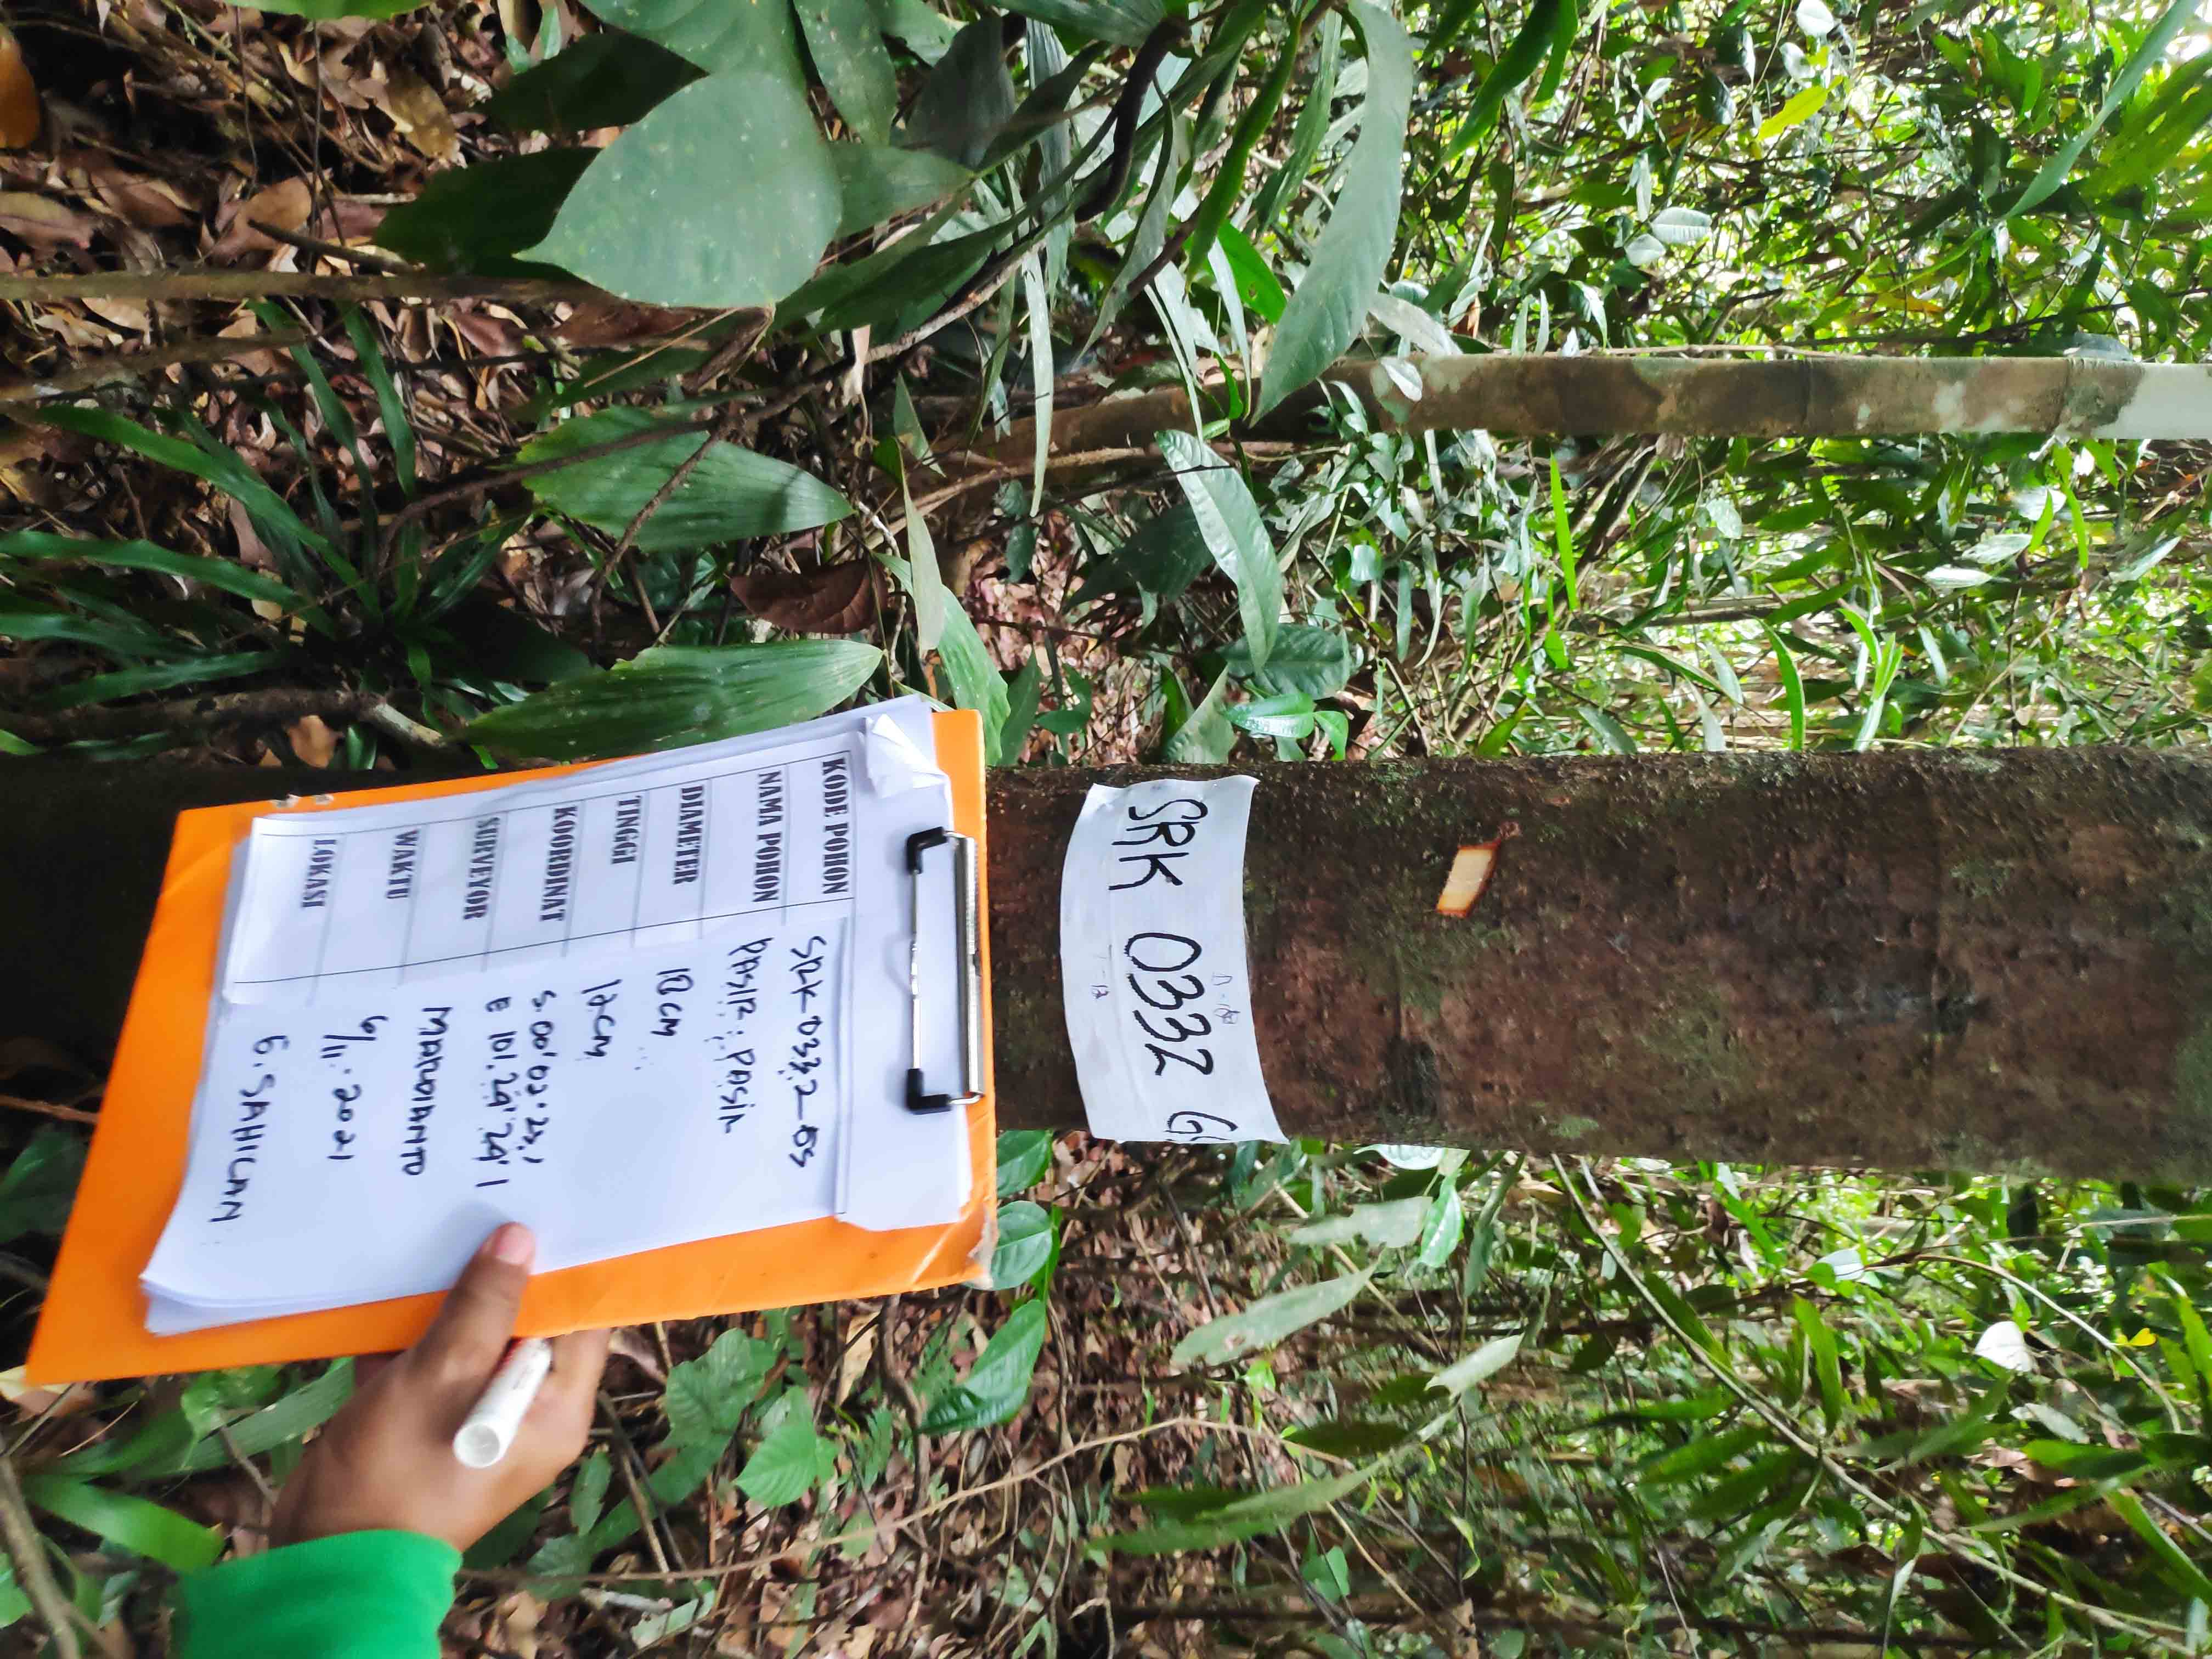 D-18
SRK 0332 GS
T-12
KODE POHON SRK 0332 GS
NAMA POHON PASIR : PASIR
DIAMETER 18 CM
TINGGI 12 CM
KOORDINAT S. 00' 02' 23,1
E 101. 24' 24' 1
SURVEYOR MARDIANTO
WAKTU 6/11. 2021
LOKASI G. SAHILAN